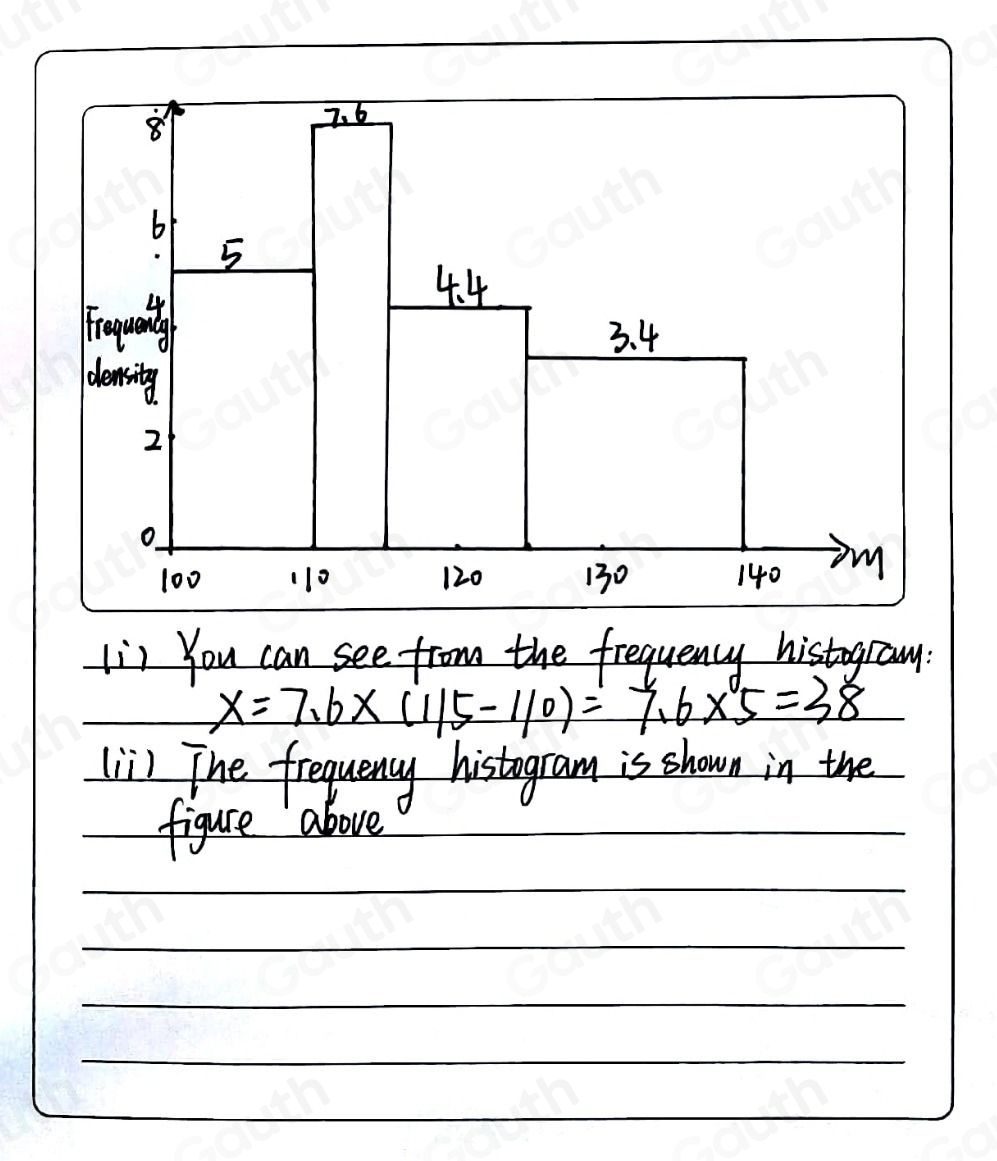 8
7.6
6
5
4.4
4
Frequency
density
3.4
2
0
100 110 120 130 140 m
(i) You can see from the frequency histogram:
x = 7.6 × (115-110) = 7.6 × 5 = 38
(ii) The frequency histogram is shown in the
figure above
Gauth